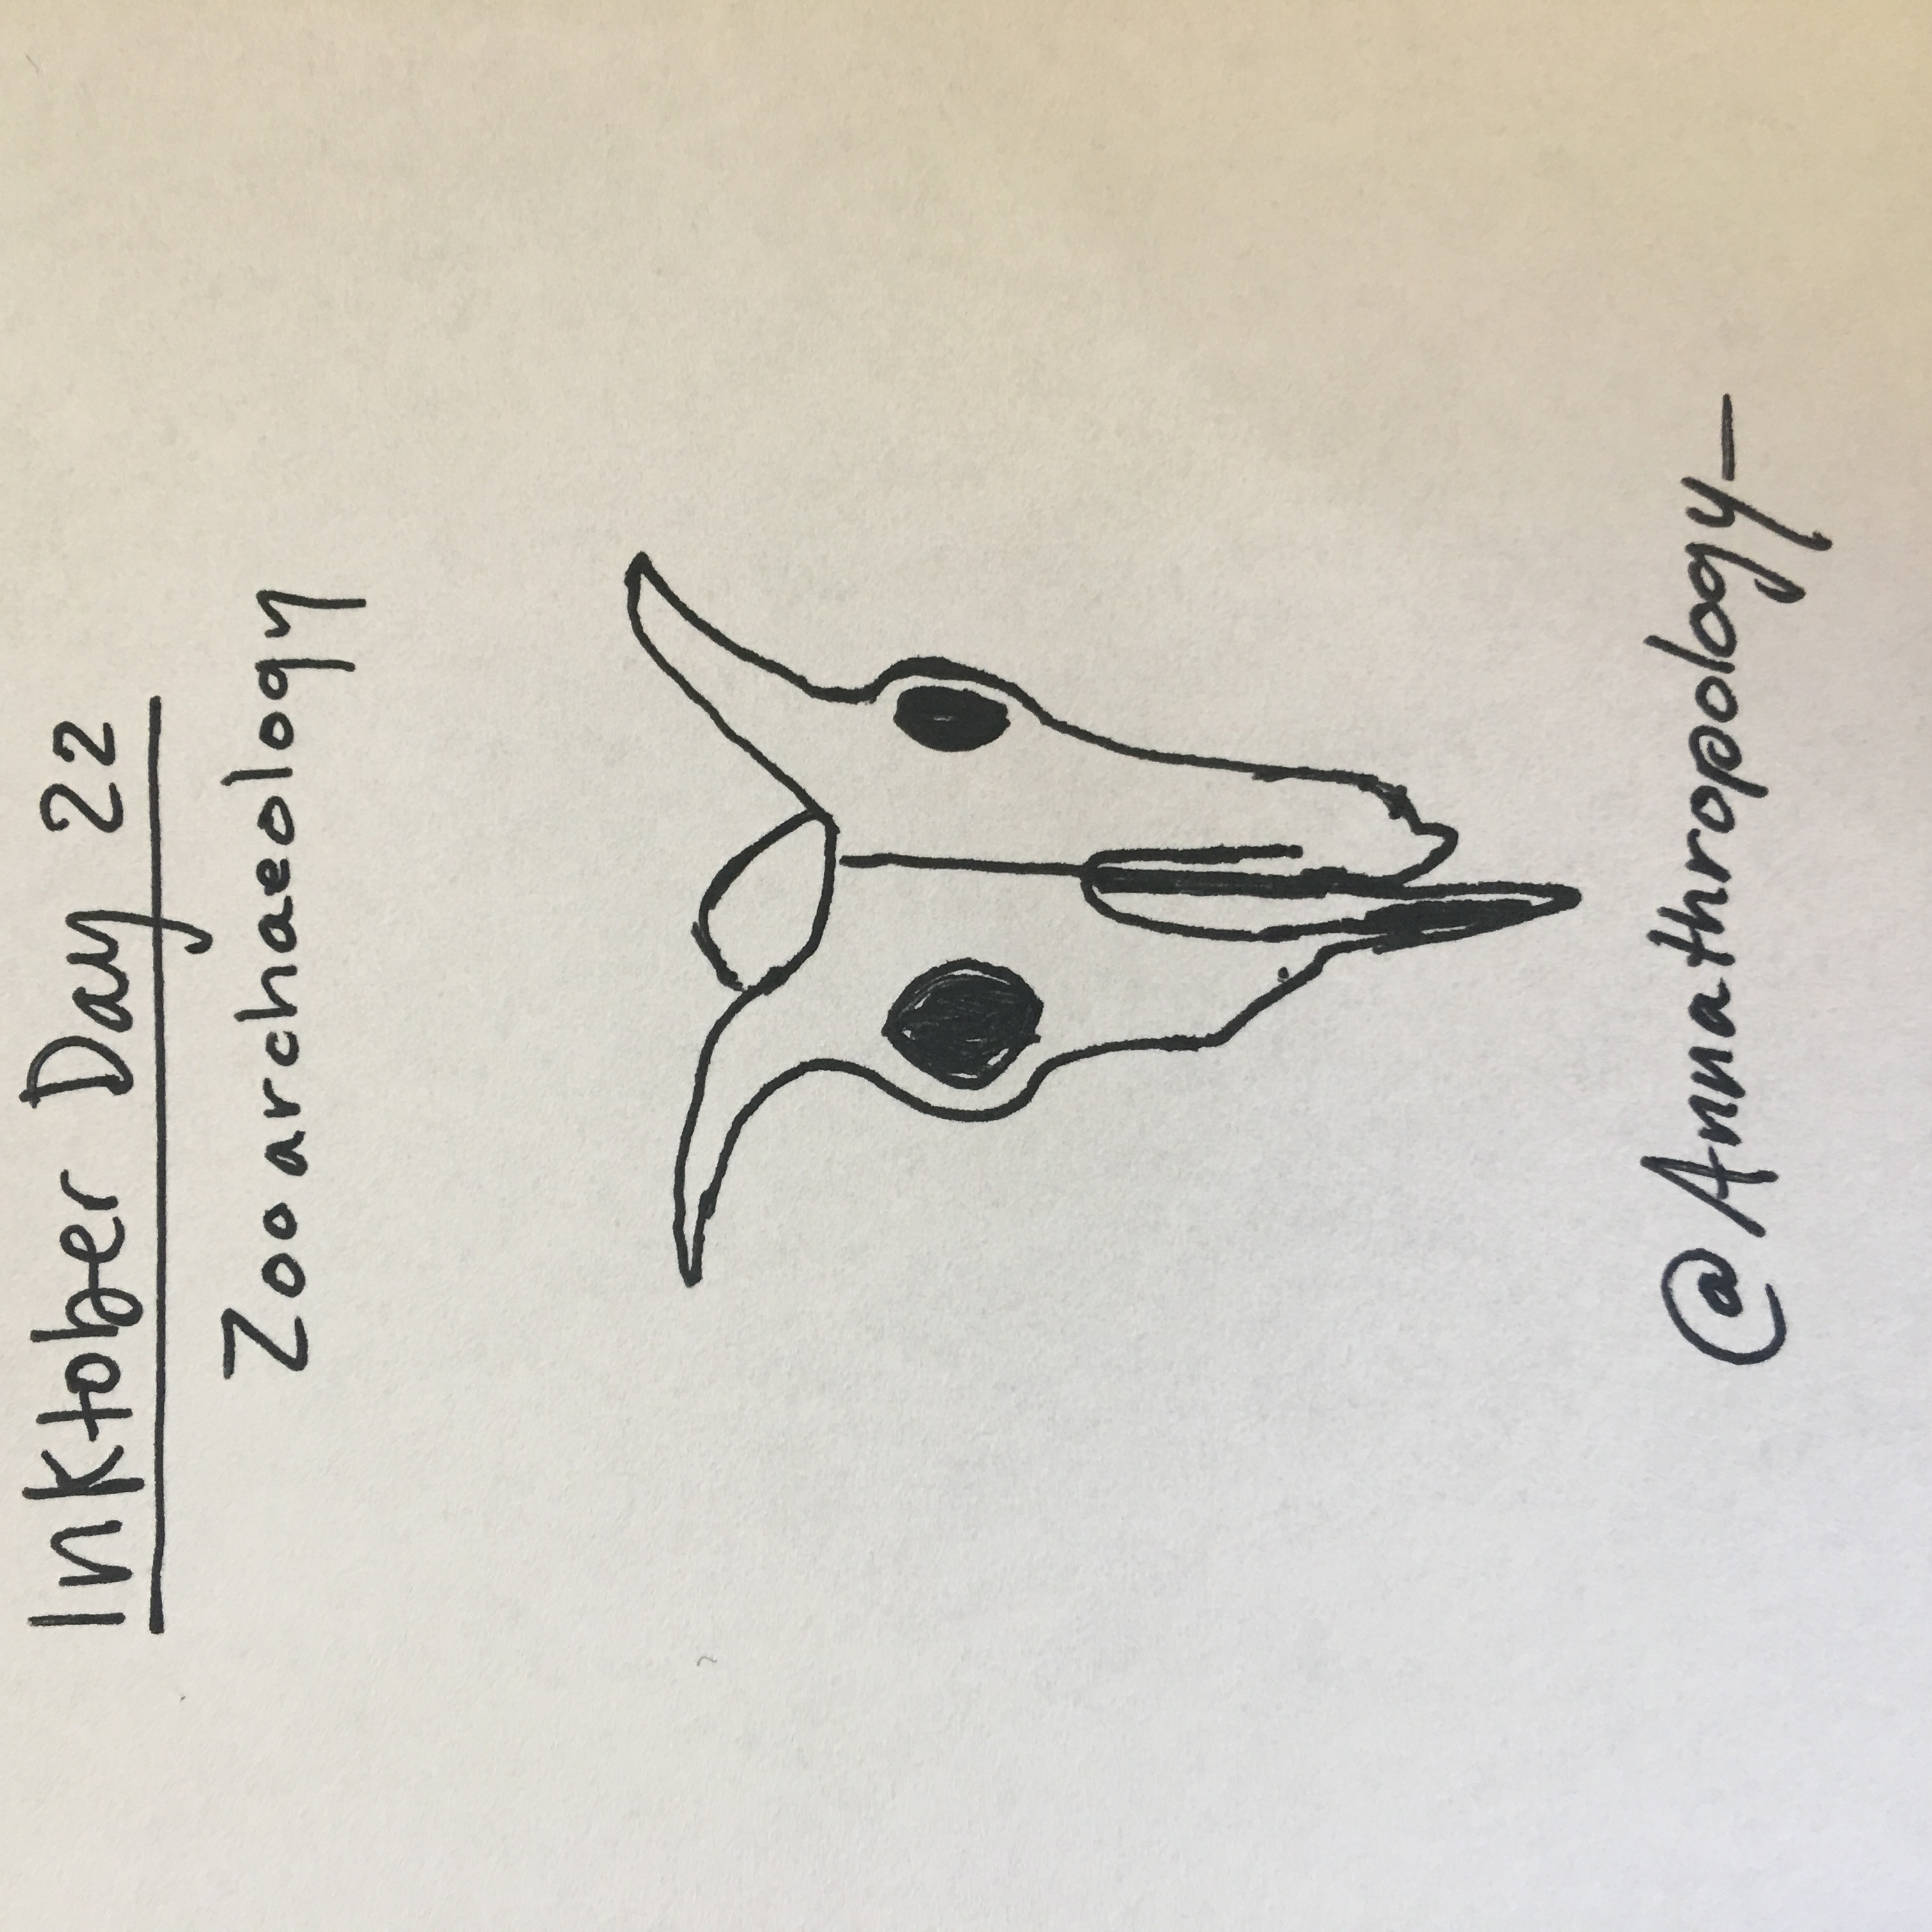 Inktober Day 22
Zooarchaeology
@Annathropology_